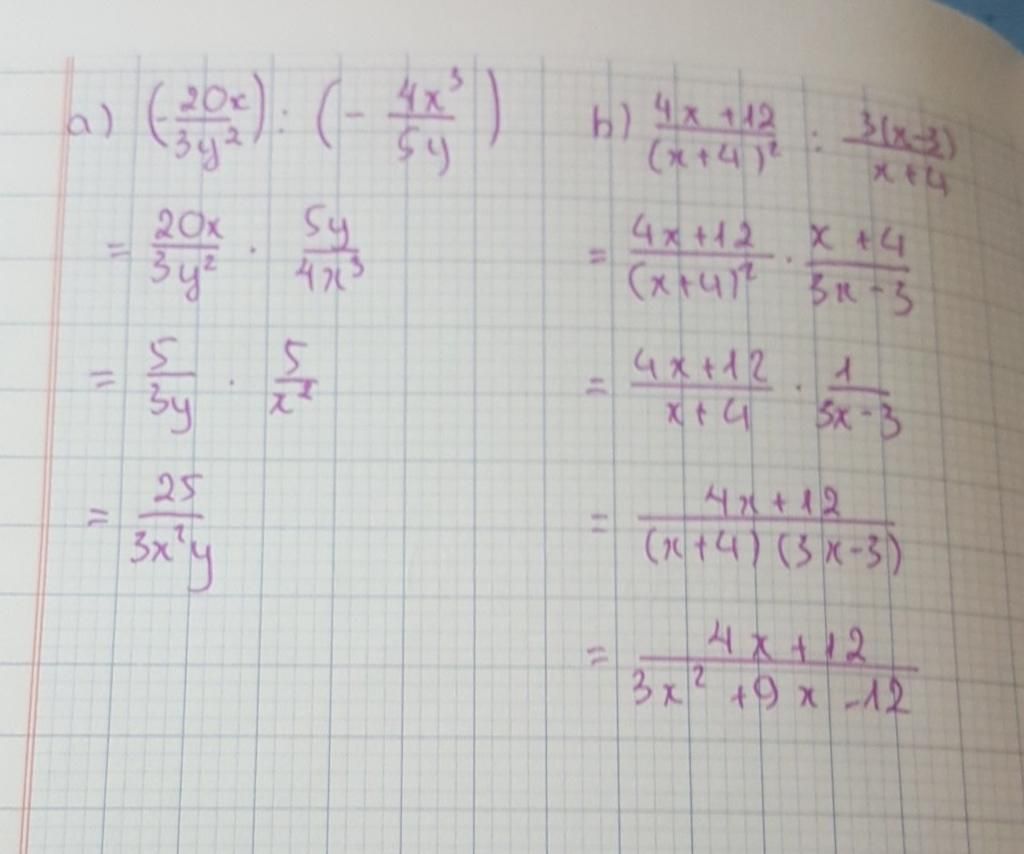 a) (-20x/3y²) : (- 4x³/5y)
= 20x/3y² . 5y/4x³
= 5/3y . 5/x²
= 25/3x²y
b) 4x+12/(x+4)² : 3(x-3)/x+4
= 4x+12/(x+4)² . x+4/3x-3
= 4x+12/x+4 . 1/3x-3
= 4x+12/(x+4)(3x-3)
= 4x+12/3x²+9x-12